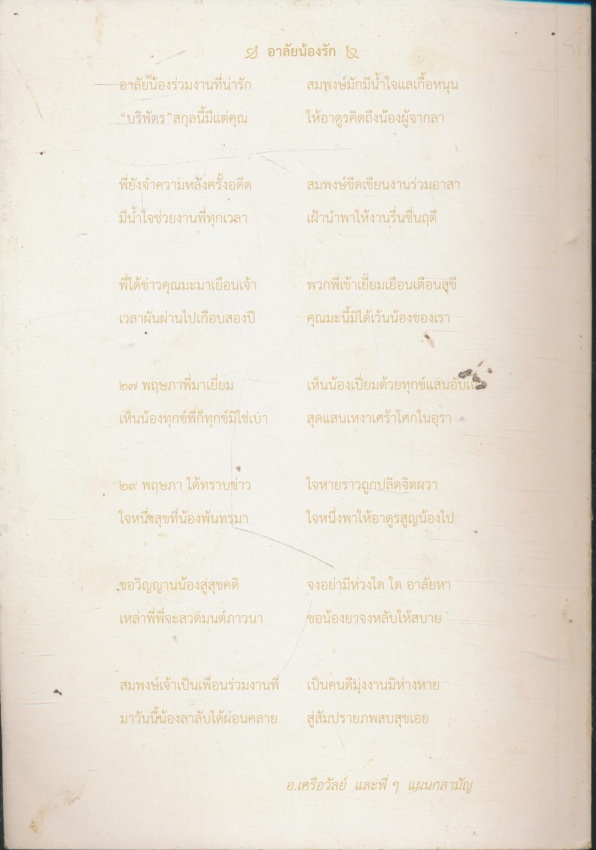 อาลัยน้องรัก
อาลัยน้องร่วมงานที่น่ารัก สมพงษ์มักมีน้ำใจแลเกื้อหนุน
“บริพัตร”สกุลนี้มีแต่คุณ ให้อาดูรคิดถึงน้องผู้จากลา
พี่ยังจำความหลังครั้งอดีต สมพงษ์ขีดเขียนงานร่วมอาสา
มีน้ำใจช่วยงานพี่ทุกเวลา เฝ้านำพาให้งานรื่นชื่นฤดี
พี่ได้ข่าวคุณมะมาเยือนเจ้า พวกพี่เข้าเยี่ยมเยือนเตือนสุขี
เวลาผันผ่านไปเกือบสองปี คุณมะนี้มิได้เว้นน้องของเรา
๒๗ พฤษภาพี่มาเยี่ยม เห็นน้องเปี่ยมด้วยทุกข์แสน
เห็นน้องทุกข์พี่ก็ทุกข์มิใช่เบา สุดแสนเหงาเศร้าโศกในอุรา
๒๙ พฤษภา ได้ทราบข่าว ใจหายราวถูกปลิดจิตผวา
ใจหนึ่งสุขที่น้องพ้นทรมา ใจหนึ่งพาให้อาดูรสูญน้องไป
ขอวิญญานน้องสู่สุขคติ จงอย่ามีห่วงใด ใด อาลัยหา
เหล่าพี่พี่จะสวดมนต์ภาวนา ขอน้องยาจงหลับให้สบาย
สมพงษ์เจ้าเป็นเพื่อนร่วมงานพี่ เป็นคนดีมุ่งงานมิห่างหาย
มาวันนี้น้องลาลับได้ผ่อนคลาย สู่สัมปรายภพสบสุขเอย
อ.เครือวัลย์ และพี่ ๆ แผนกสามัญ